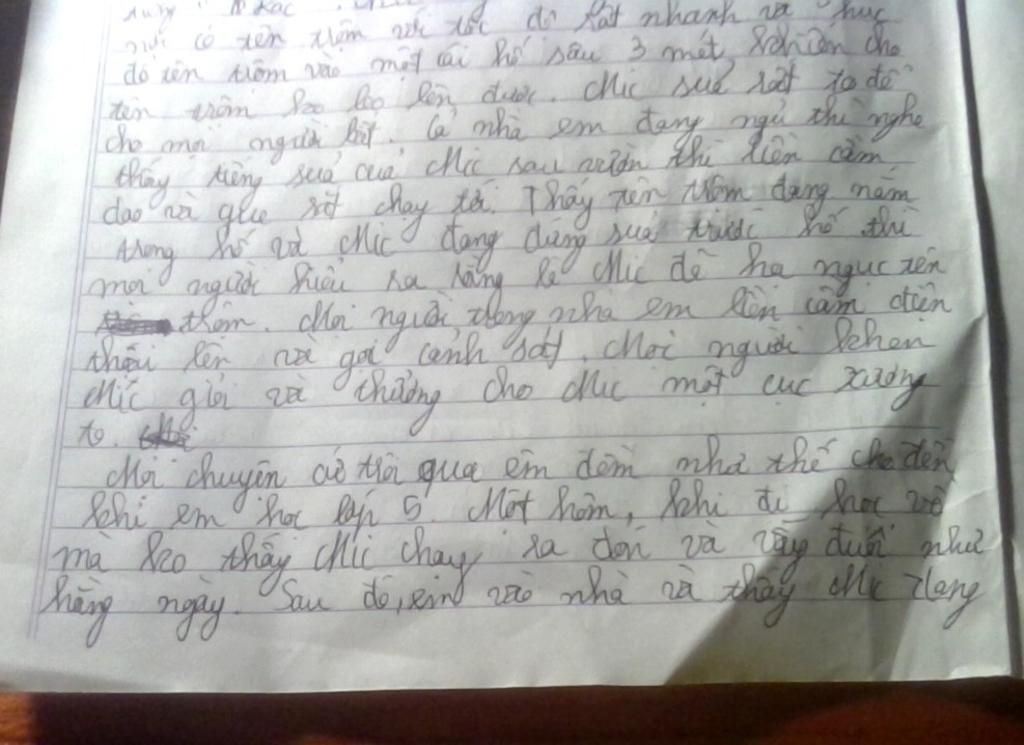 mới có tên trộm với tốc độ rất nhanh và húc
đổ tên trộm vào một cái hố sâu 3 mét khiến cho
tên trộm ko leo lên được. Mic sủa rất to để
cho mọi người biết. Cả nhà em đang ngủ thì nghe
thấy tiếng sủa của Mic sau vườn thì liền cầm
dao và gậy sắt chạy tới. Thấy tên trộm đang nằm
trong hố và Mic đang đứng sủa trước hố thì
mọi người hiểu ra rằng là Mic đã hạ ngục tên
trộm. Mọi người trong nhà em liền cầm điện
thoại lên và gọi cảnh sát. Mọi người khen
Mic giỏi và thưởng cho Mic một cục xương
to.
Mọi chuyện cứ trôi qua êm đềm như thế cho đến
khi em học lớp 5. Một hôm, khi đi học về
mà ko thấy Mic chạy ra đón và vẫy đuôi như
hằng ngày. Sau đó, em vào nhà và thấy Mic đang